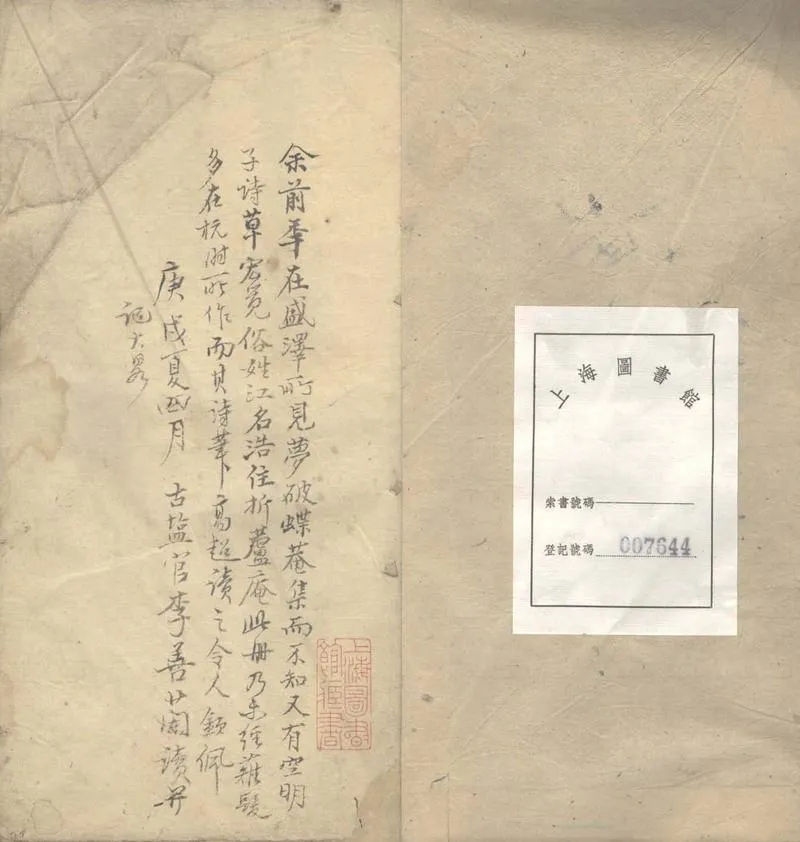 上海圖書館
索書號碼
登記號碼 007644
余前秊在盛澤所見夢破蝶菴集而不知又有空明
子詩草宏覓俗姓江名浩住折蘆庵此冊乃未經薙髮
多在杭时所作而其詩筆高超讀之令人欽佩
庚戌夏四月 古塩官李善蘭讀并
記大畧
上海圖書
館藏書